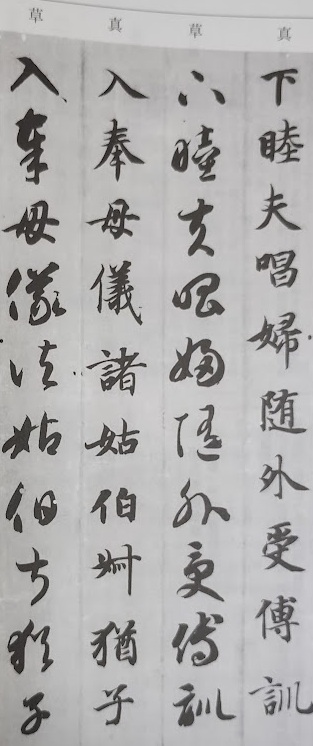 真 草 真 草
下睦夫唱婦随外受傅訓
下睦夫唱婦随外受傅訓
入奉母儀諸姑伯叔猶子
入奉母儀諸姑伯叔猶子